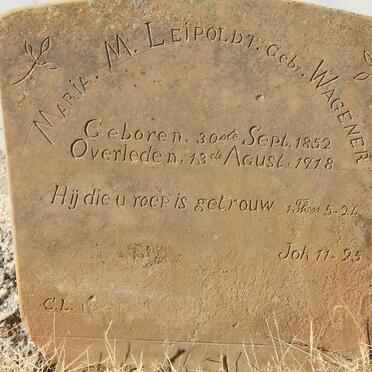 MARIA. M. LEIPOLDT. Gebr. WAGENER
Geboren. 30ste Sept. 1852
Overleden. 13de Agust. 1918
Hij die u roep is getrouw 1 Thes 5-24
Joh 11-25
C.L.